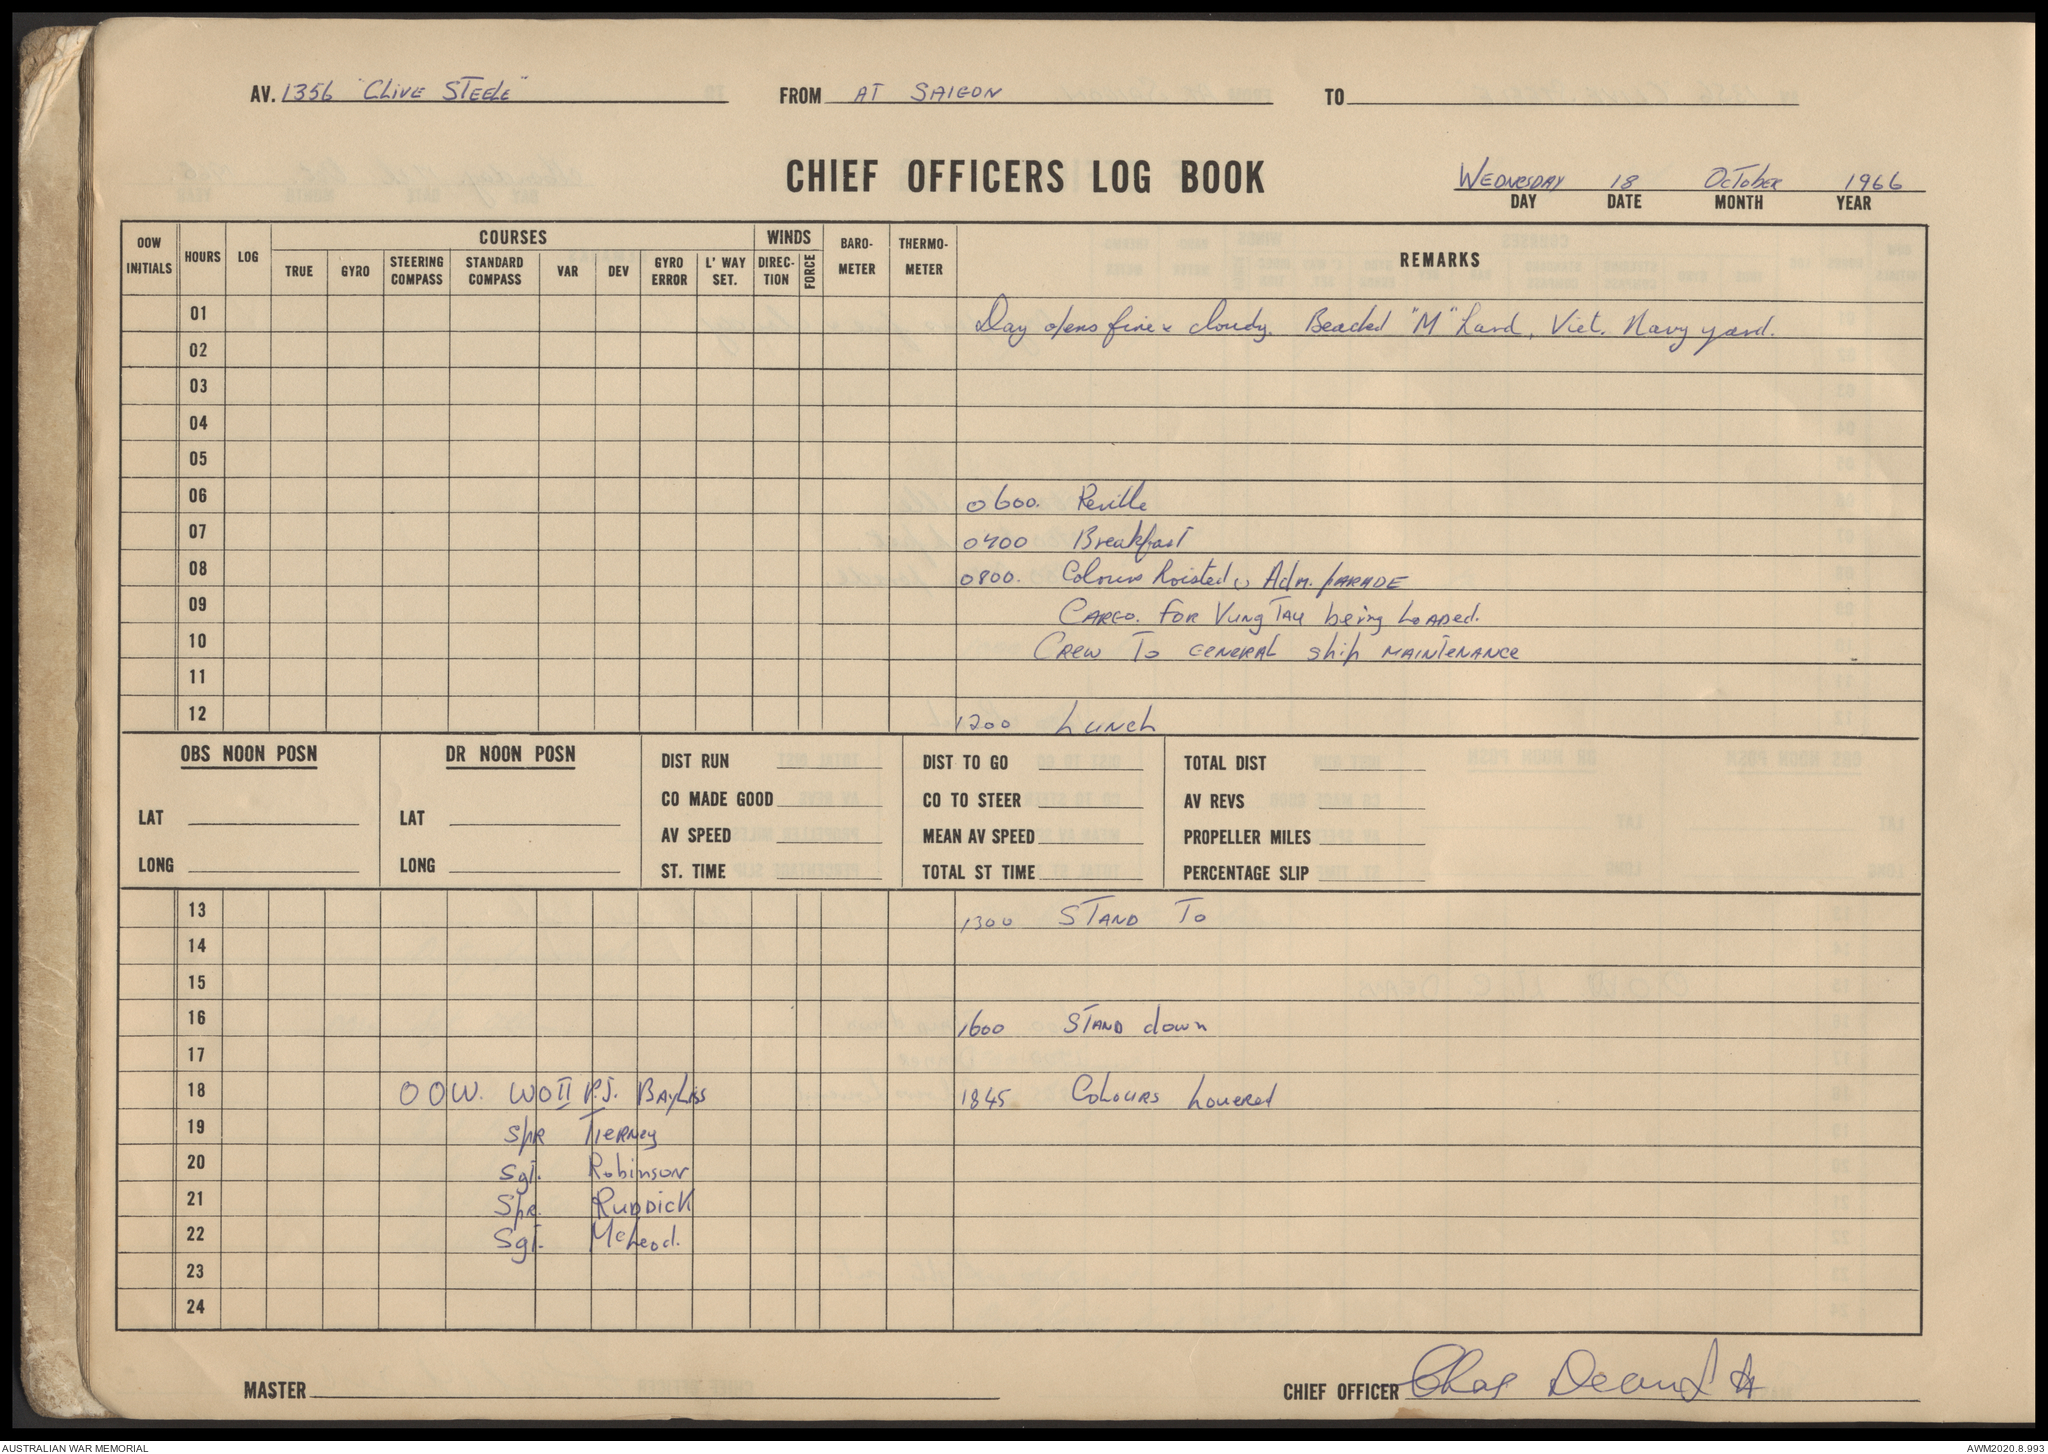 AV. 1356 "Clive STeele" FROM AT SAIGON TO
CHIEF OFFICERS LOG BOOK
WEDNESDAY 18 OCTOBER 1966
DAY DATE MONTH YEAR
OOW INITIALS HOURS LOG COURSES WINDS BARO-METER THERMO-METER REMARKS
TRUE GYRO STEERING COMPASS STANDARD COMPASS VAR DEV GYRO ERROR L' WAY SET. DIREC-TION FORCE
01 Day opens fine & cloudy. Beached "M" Hard, Viet. Navy yard.
02
03
04
05
06 0600. Reville
07 0700 Breakfast
08 0800. Colours hoisted & Adm. PARADE
09 CARGO. FOR VUNG TAU being LOADED.
10 CREW To GENERAL ship MAINTENANCE
11
12 1200 LUNCH
OBS NOON POSN DR NOON POSN DIST RUN DIST TO GO TOTAL DIST
CO MADE GOOD CO TO STEER AV REVS
LAT LAT AV SPEED MEAN AV SPEED PROPELLER MILES
LONG LONG ST. TIME TOTAL ST TIME PERCENTAGE SLIP
13 1300 STAND To
14
15
16 1600 STAND down
17
18 OOW. WOII P.J. BAYLISS 1845 COLOURS Lowered
19 Spr TIERNEY
20 Sgt. Robinson
21 Spr. RUDDICK
22 Sgt. McLeod.
23
24
MASTER CHIEF OFFICER Chas
AUSTRALIAN WAR MEMORIAL AWM2020.8.993